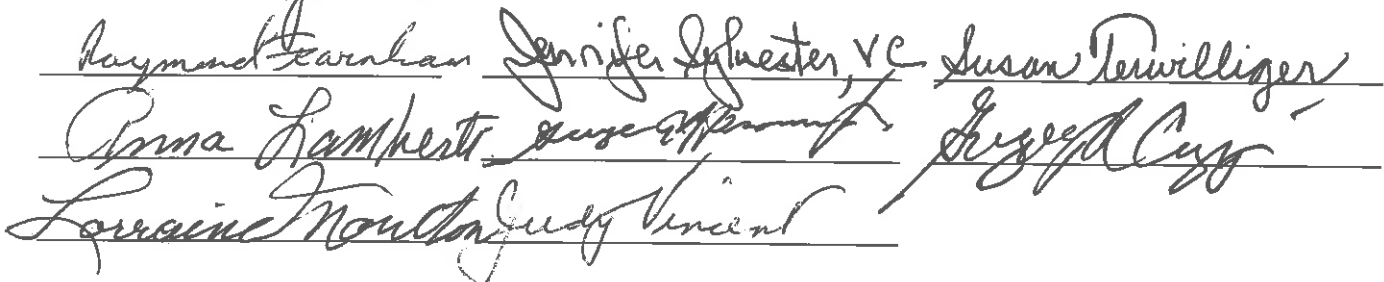 Raymond Farnham Jennifer Sylvester, VC Susan Terwilliger
Anna Lambert George
Lorraine Moulton Judy Vincent